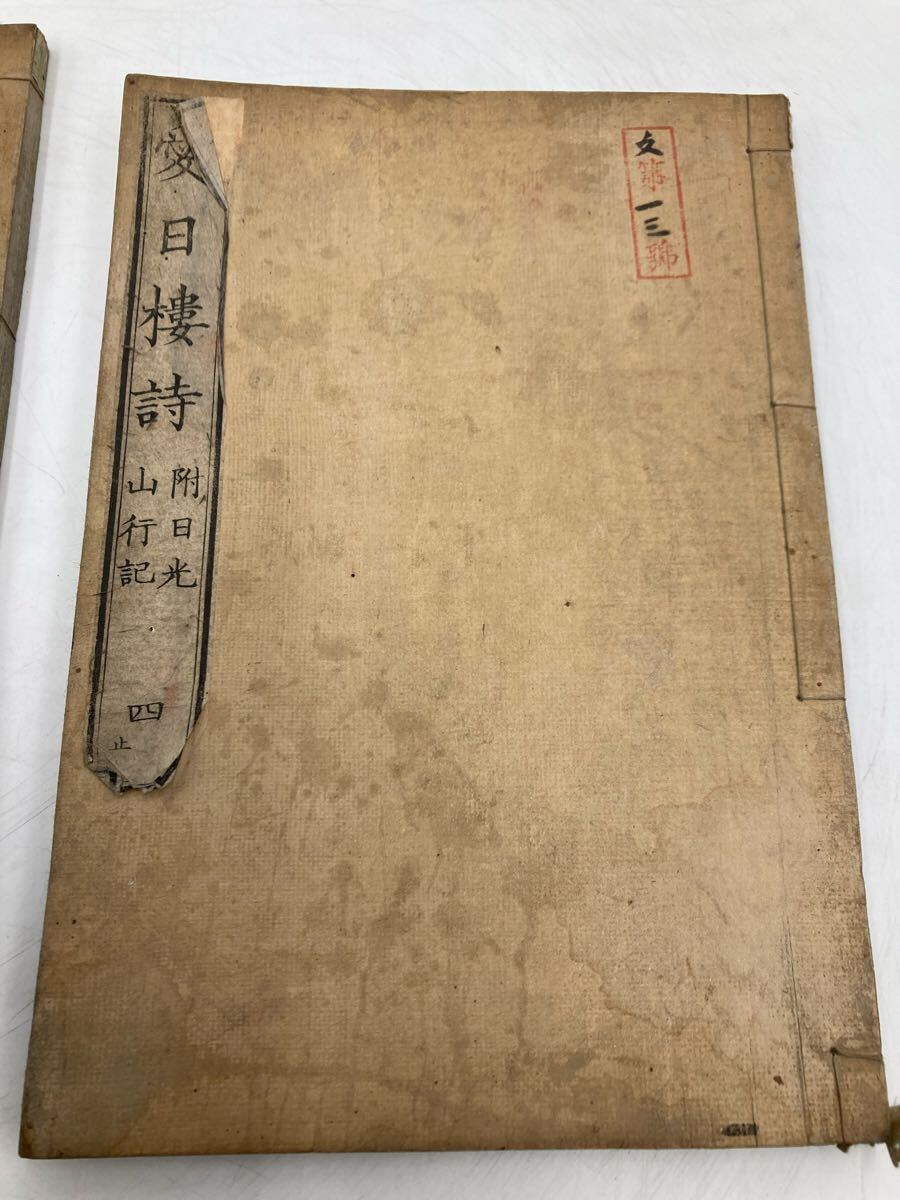 文第一三號
愛日樓詩
附日光
山行記
四
止